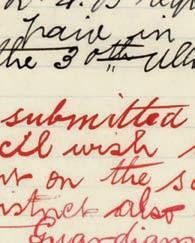 pair in
the 30th Ul
submitted
cil wish
on the s
istrict also
Guardian